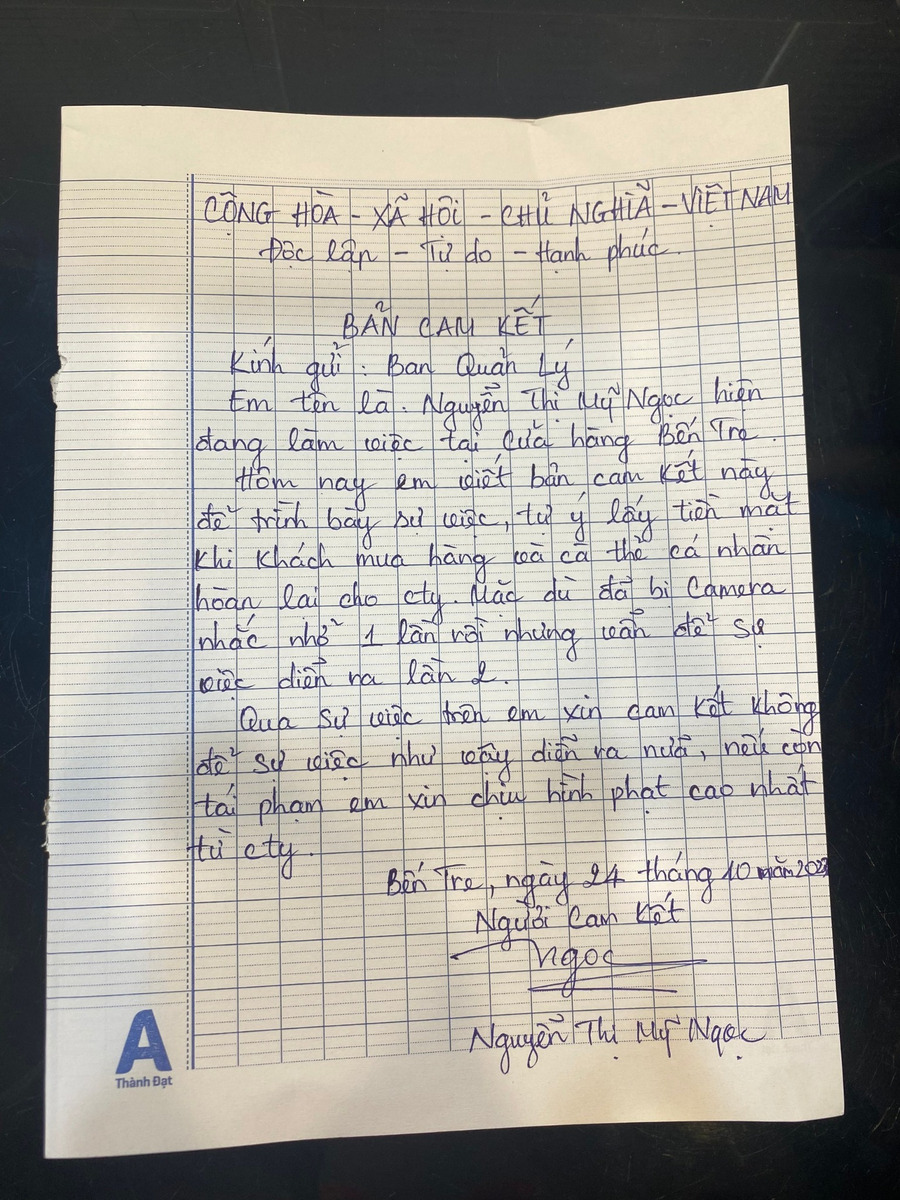 CỘNG HÒA - XÃ HỘI - CHỦ NGHĨA - VIỆT NAM
Độc lập - Tự do - Hạnh phúc.
BẢN CAM KẾT
Kính gửi : Ban Quản Lý
Em tên là : Nguyễn Thị Mỹ Ngọc hiện
đang làm việc tại Cửa hàng Bến Tre.
Hôm nay em viết bản cam kết này
để trình bày sự việc, tự ý lấy tiền mặt
khi khách mua hàng và cà thẻ cá nhân
hoàn lại cho cty. Mặc dù đã bị Camera
nhắc nhở 1 lần rồi nhưng vẫn để sự
việc diễn ra lần 2.
Qua sự việc trên em xin cam kết không
để sự việc như vậy diễn ra nữa, nếu còn
tái phạm em xin chịu hình phạt cao nhất
từ cty.
Bến Tre, ngày 24 tháng 10 năm
Người Cam Kết
Ngọc
Nguyễn Thị Mỹ Ngọc
A
Thành Đạt